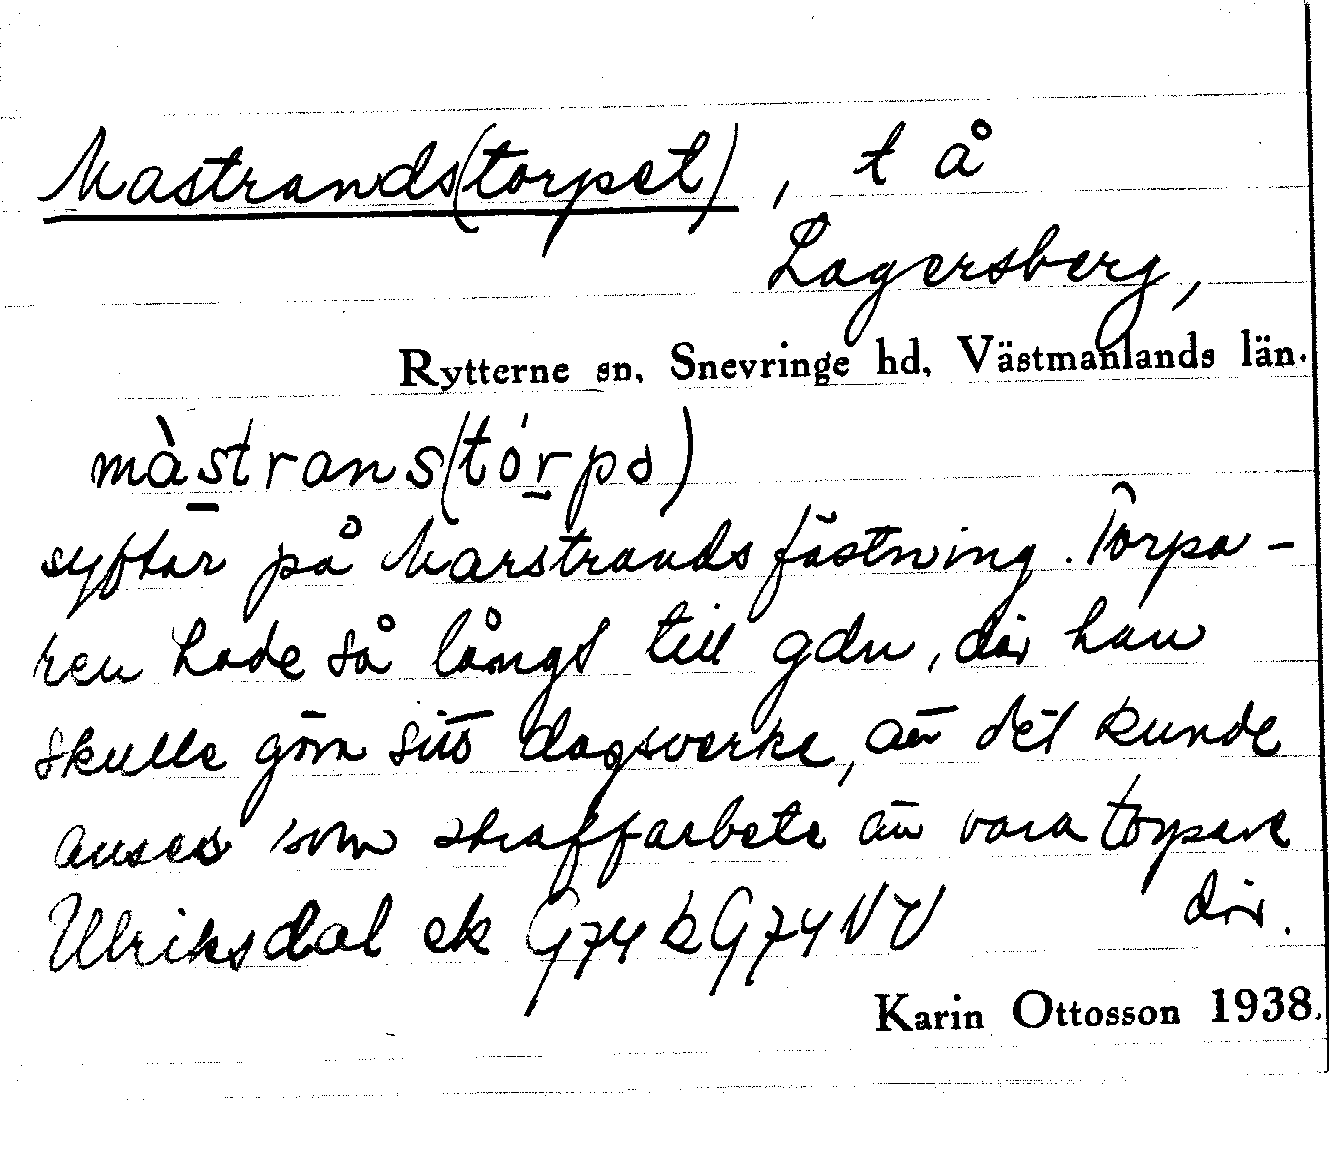 Mastrands(torpet), t å
Lagersberg,
Rytterne sn, Snevringe hd, Västmanlands län.
màstrans(tórpə)
syftar på Marstrands fästning. Torpa-
ren hade så långt till gdn, där han
skulle göra sitt dagsverke, att det kunde
anses som straffarbete att vara torpare
där.
Ulriksdal ek G74 k G74 NV
Karin Ottosson 1938.